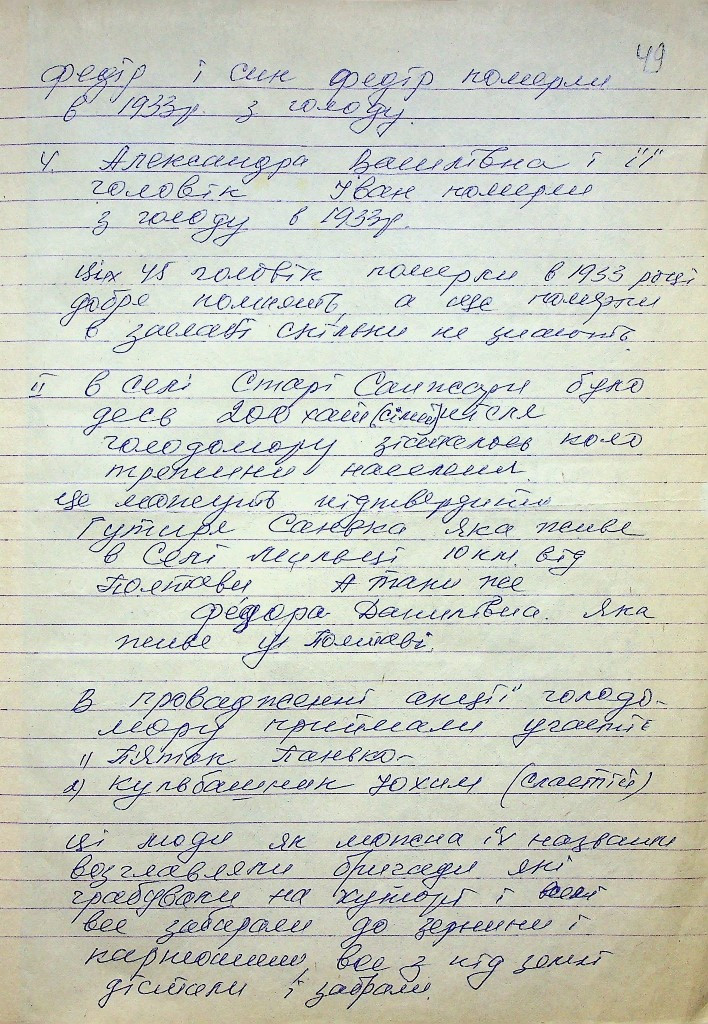 49
федір і син федір померли
в 1933р. з голоду.
4. Александра Василівна і її
чоловік Іван померли
з голоду в 1933р.
Цих 45 чоловік померли в 1933 році
добре помнять, а ще померли
в заславі скільки не знають.
II В селі Старі Санжари було
десь 200 хат (сімей) після
голодомору зісталось коло
третини населення.
Це можуть підтвердити
Гутиря Санька яка живе
в Селі Мильці 10 км. від
Полтави А таки же
Федора Данилівна. яка
живе у Полтаві.
В провадженні акції голодо-
мору приймали участь
1) Пяток Панько-
2) Кульбашник Юхим (сластій)
ці люди як можна їх назвати
возглавляли бригади які
грабували на хуторі і селі
все забирали до зернини і
картошини все з під землі
дістали і забрали.